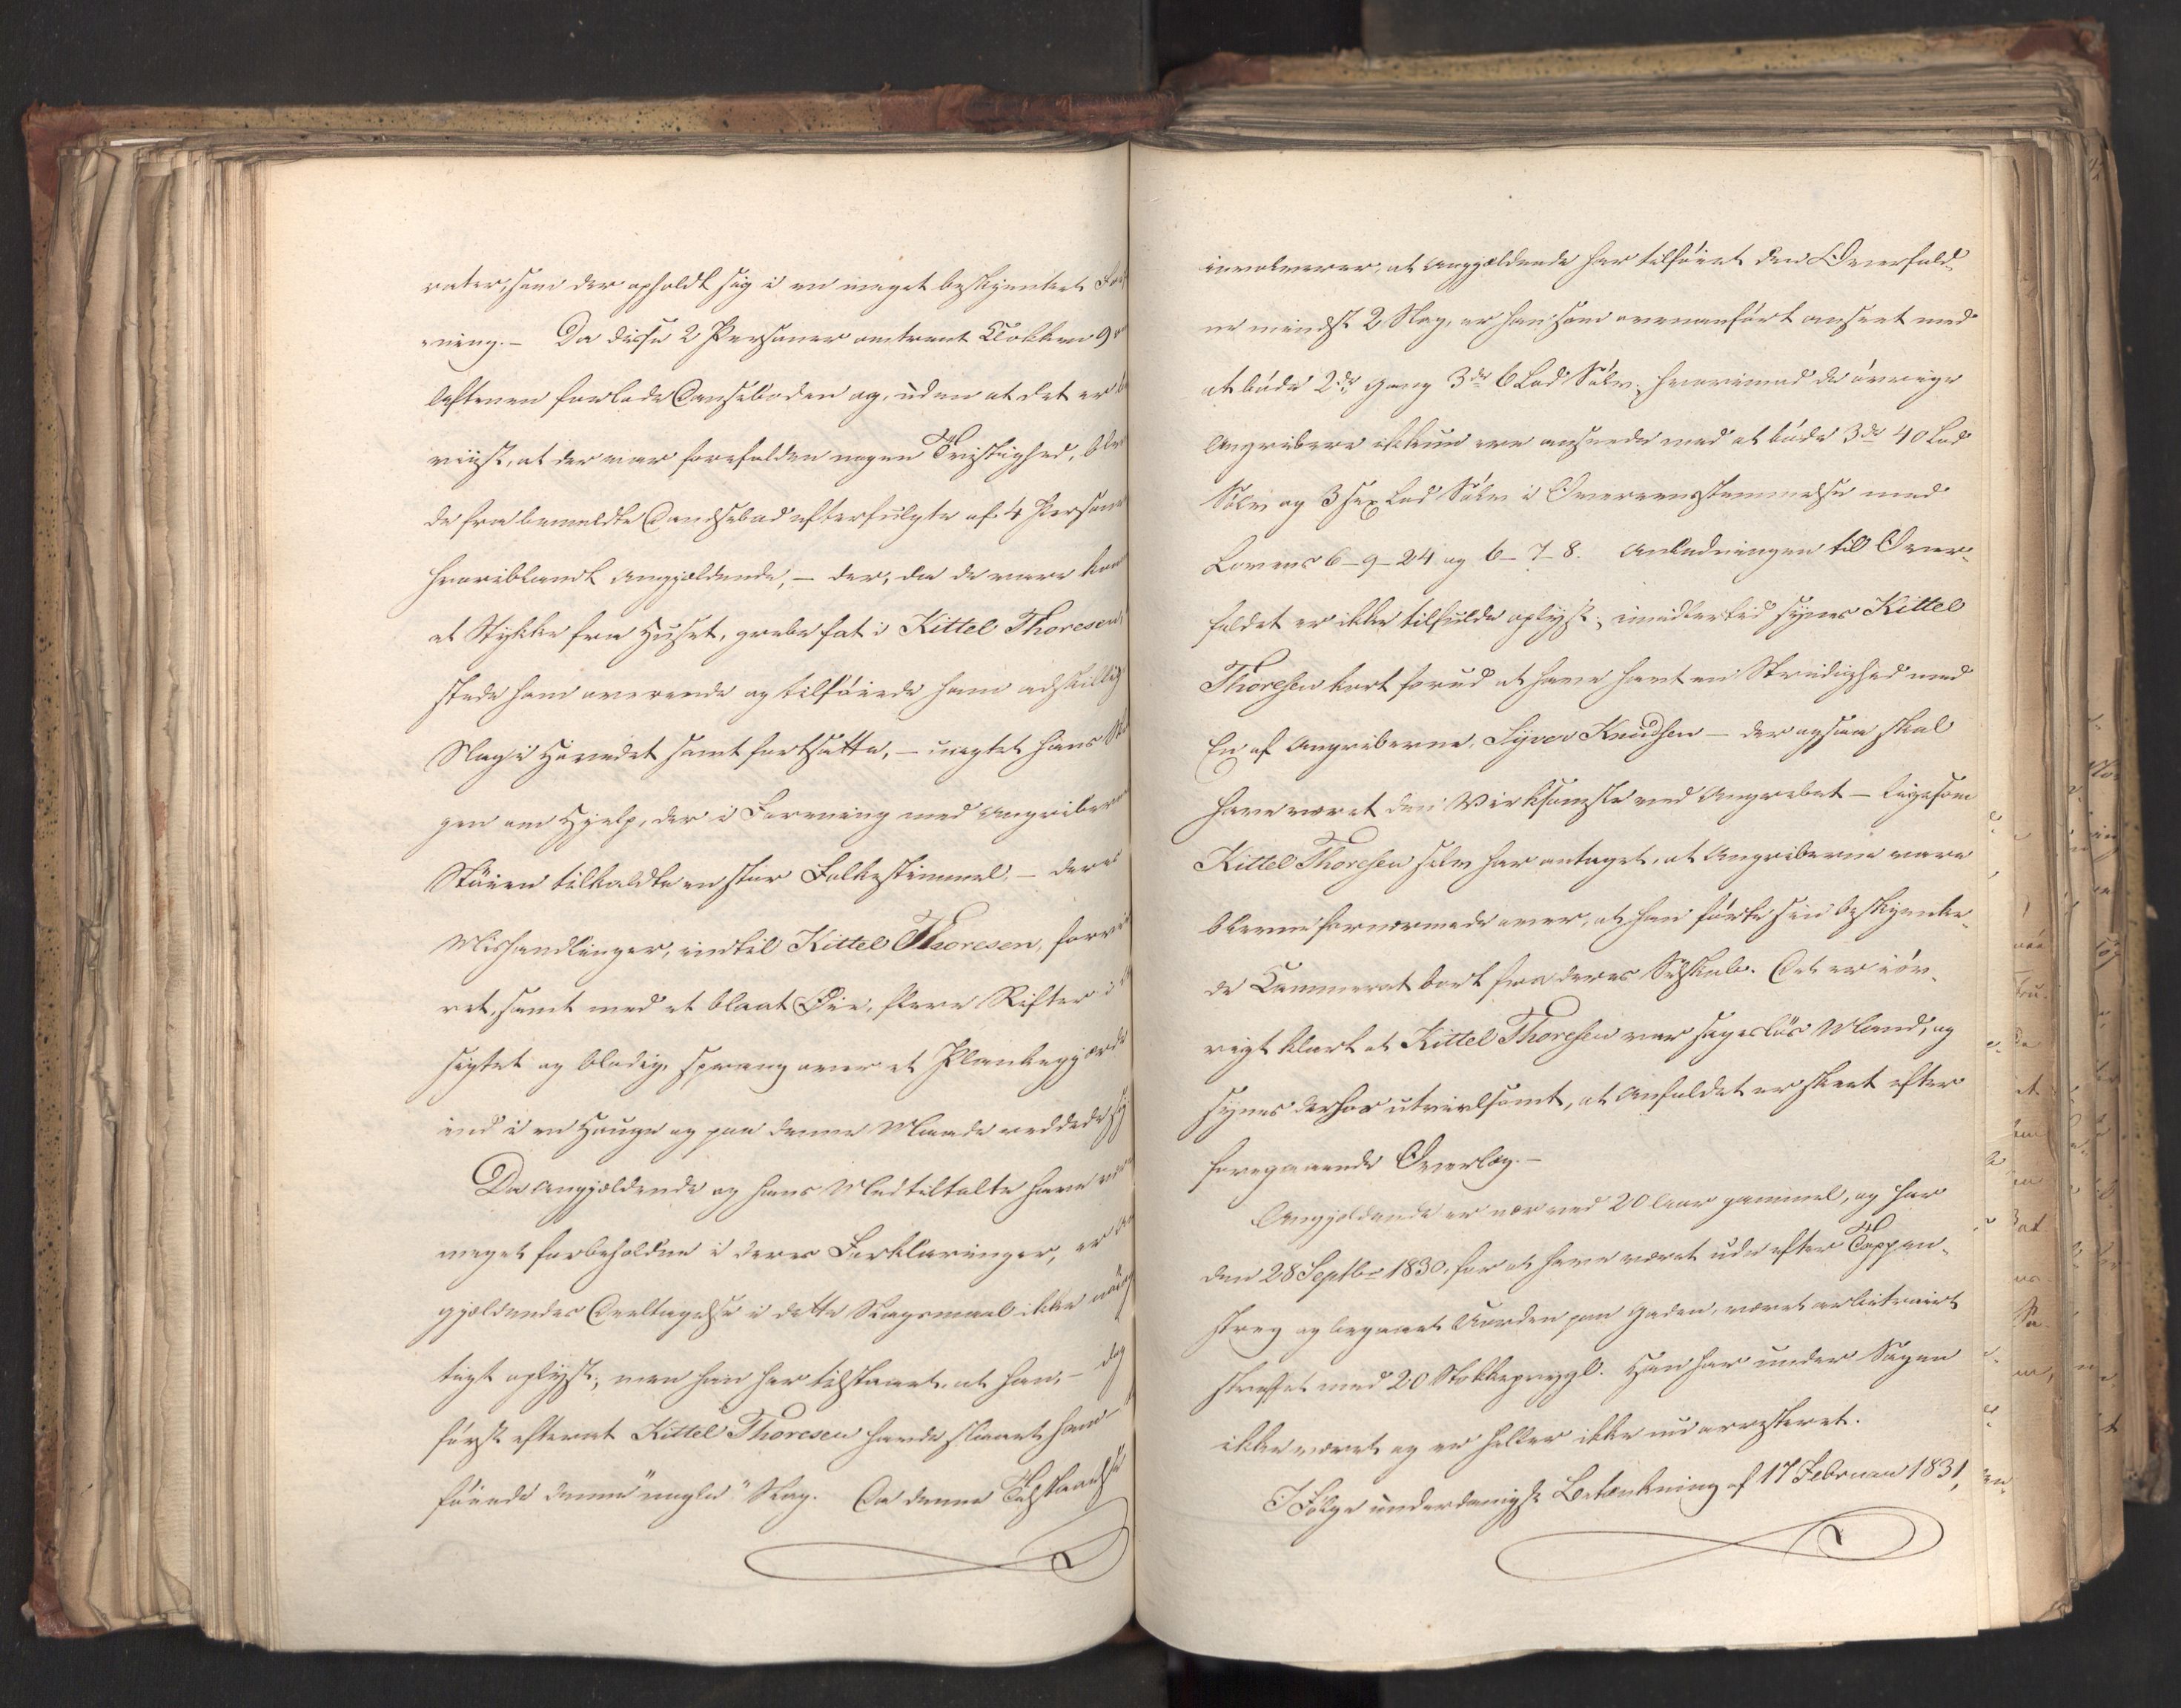 rater, som der opholdt sig i en meget beskjenket For
ening. – Da disse 2 Personer omtrent Klokken 9
Aftenen forlode Dandseboden og, uden at det er
viist, at der var forefalden nogen Trættighed, ble
de fra bemeldte Dandsebod efterfulgte af 4 Persone
hvoriblandt Angjældende, – der, da de vare kom
et Stykke fra Huset, grebe fat i Kittel Thoresen,
stødte ham overende og tilføiede ham adskillig
Slag i Hovedet samt fortsatte, – uagtet hans
gen om Hjelp, der i Forening med Angribern
Støien tilkaldte en stor Folkestimmel, – deres
Mishandlinger, indtil Kittel Thoresen, forvi
ret, samt med et blaat Øie, flere Rifter i
sigtet og blodig, sprang over et Plankegjærde
ind i en Hauge og paa denne Maade reddede sig
Da Angjældende og hans Medtiltalte have været
meget forbeholdne i deres Forklaringer, er
gjældendes Deeltagelse i dette Slagsmaal ikke nøiag
tigt oplyst; men han har tilstaaet, at han, – dog
først efterat Kittel Thoresen havde slaaet ham –
føiede denne "nogle" Slag. Da denne Tilstaaelse
involverer, at Angjældende har tilføiet den Overfald-
ne mindst 2 Slag, er han som ovenanført anseet med
at bøde 2de Gang 3de 6 Lod Sølv, hvorimod de øvrige
Angribere ikkun ere anseede med at bøde 3de 40 Lod
Sølv og 3 sex Lod Sølv i Overeensstemmelse med
Lovens 6–9–24 og 6–7–8. Anledningen til Over-
faldet er ikke tilfulde oplyst; imidlertid synes Kittel
Thoresen kort forud at have havt en Stridighed med
En af Angriberne, Syver Knudsen – der ogsaa skal
have været den Virksomste ved Angrebet – ligesom
Kittel Thoresen selv har antaget, at Angriberne vare
blevne fornærmede over, at han førte sin beskjenke-
de Kammerat bort fra deres Selskab. Det er iøv-
rigt klart at Kittel Thoresen var sagesløs Mand, og
synes derhos utvivlsomt, at Anfaldet er skeet efter
foregaaende Overlæg. –
Angjældende er nær ved 20 Aar gammel, og har
den 28 Septbr 1830, for at have været ude efter Tappen-
streg og begaaet Uorden paa Gaden, været arbitrairt
straffet med 20 Stokkeprygl. Han har under Sagen
ikke været og er heller ikke nu arresteret.
I Følge underdanigst Betænkning af 17 Februar 1831,